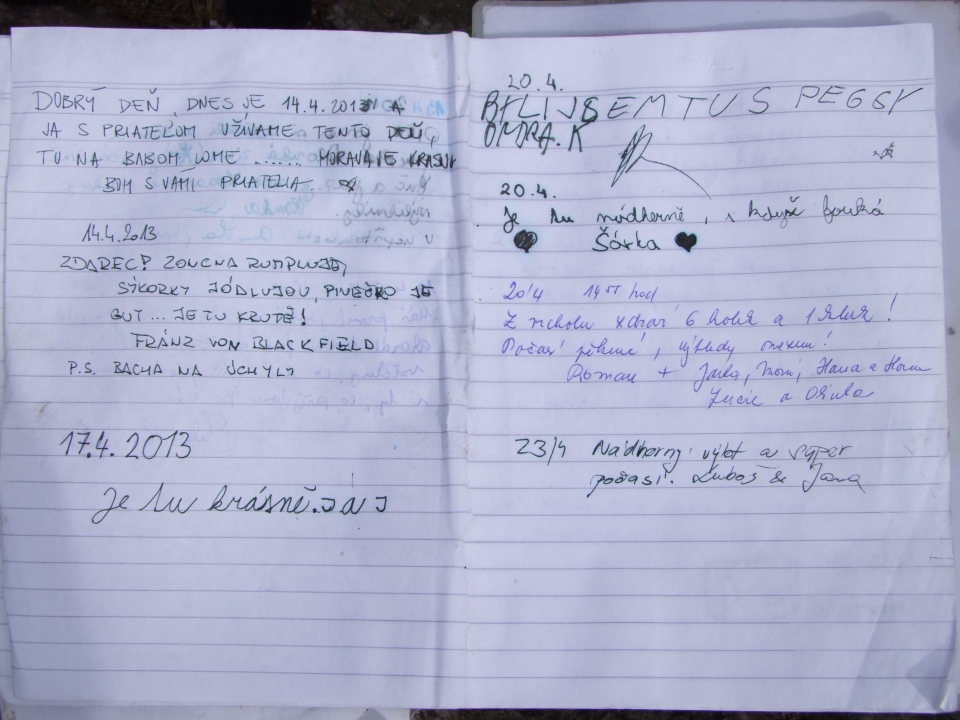 DOBRÝ DEŇ, DNES JE 14.4.2013 A
JA S PRIATEĽOM UŽÍVAME TENTO DEŇ,
TU NA BABOM LOME ........ MORAVA JE KRASNA
BOH S VAMI PRIATELIA
14.4.2013
ZDAREC! ZOUCNA RUMPLUJE,
SÝKORKY JÓDLUJOU, PIVEČKO JE
GUT ... JE TU KRUTĚ!
FRÁNZ VON BLACKFIELD
P.S. BACHA NA ÚCHYLY
17.4.2013
Je tu krásně. JÁ J
20.4.
BYLI JSEM TU S PEGGY
ONDRA.K
20.4.
Je tu nádherně, i když fouká
Šárka
20/4 14 55 hod
Z vrcholu zdraví 6 holek a 1 kluk!
Počasí pěkné, výhledy
Roman + Jarka, Hana a
Lucie a
23/4 Nádherný výlet a super
počasí. Luboš & Jana